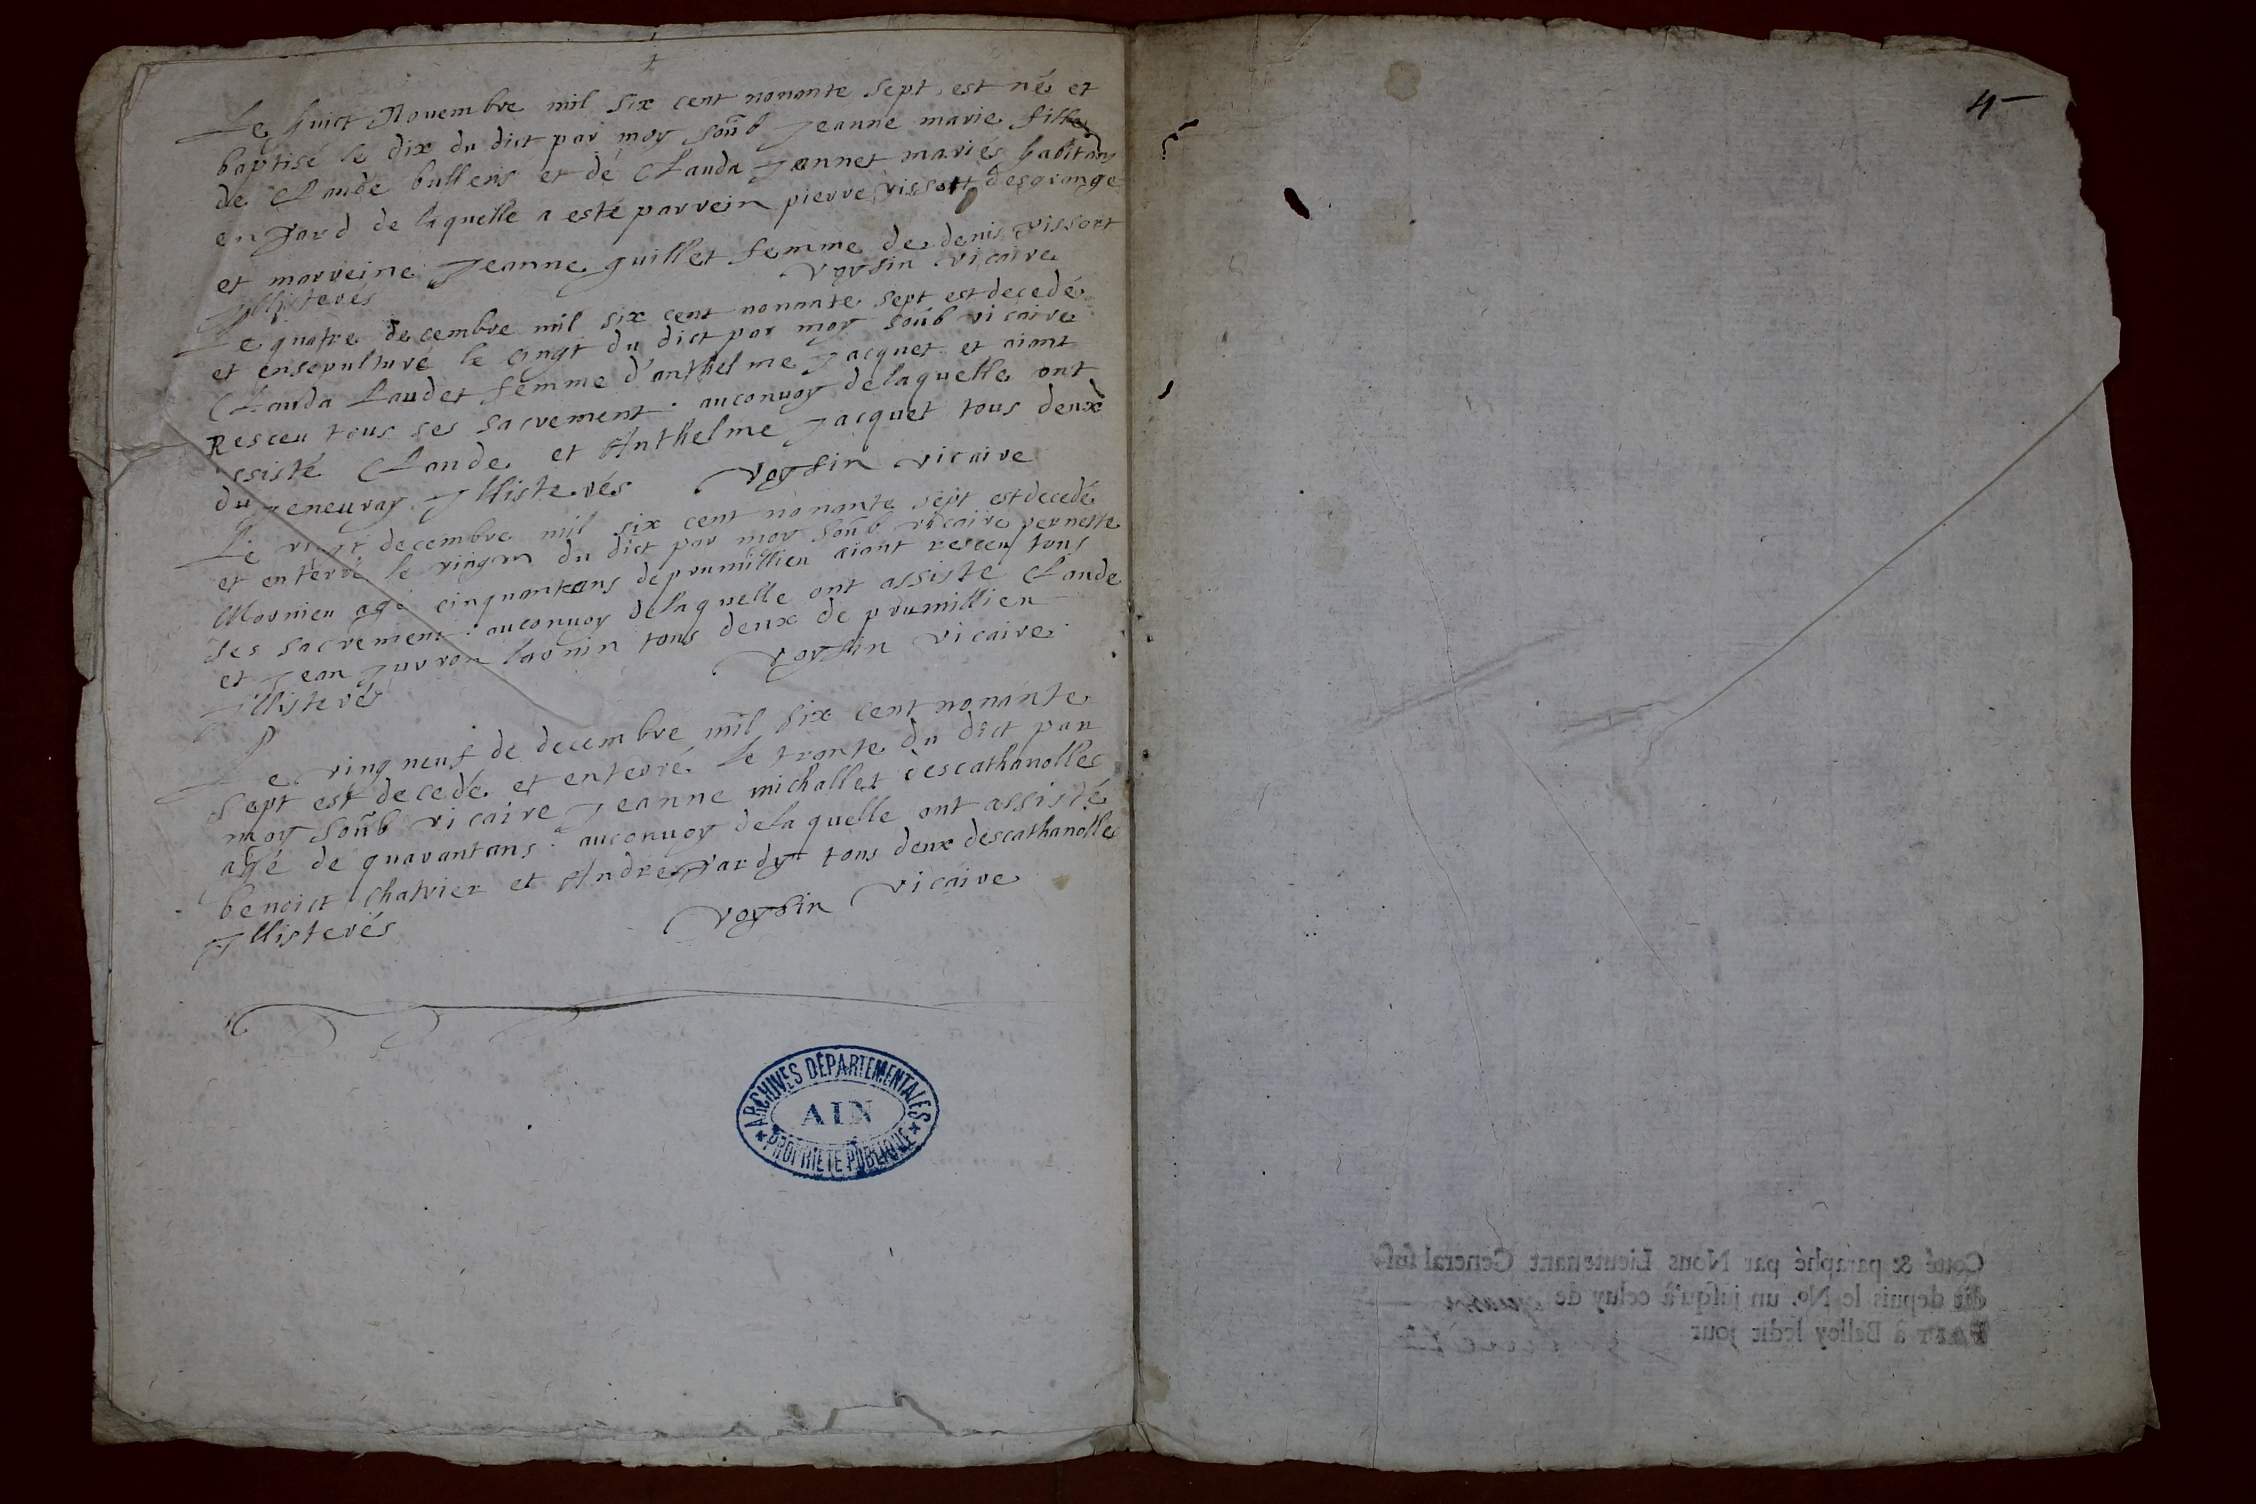 Le huict Novembre mil six cent nonante sept est né et
baptisé le dix du dict par moy soub Jeanne marie fille
de Claude bullens et de Clauda Jannet mariés habitans
en Jard de laquelle a esté parrein pierre vissort desgrange
et marreine Jeanne guillet femme de denis vissort
Illisterés voysin vicaire
Le quatre decembre mil six cent nonante sept est decedé
et ensepulturé le cinqt du dict par moy soub vicaire
Clauda Laudet femme d'anthelme Jacquet et aiant
Resceu tous ses sacrement auconvoy delaquelle ont
ssisté Claude et Anthelme Jacquet tous deux
du Jeneuray Illisterés voysin vicaire
Le vingt decembre mil six cent nonante sept est decedé
et enterré le vingun du dict par moy soub vicaire pernette
Mornieu agé cinquantans deprumillieu aiant resceu tous
ses sacrement auconvoy delaquelle ont assiste Claude
et Jean Juvron tous deux de prumillieu
Illisterés voysin vicaire
Le vingneuf de decembre mil six cent nonante
sept est decedé et enterré le trante du dict par
moy soub vicaire Jeanne michallet descathanolles
agé de quarantans auconvoy delaquelle ont assisté
benoict chalvier et Andre Jardy tous deux descathanolles
Illisterés voysin vicaire
ARCHIVES DÉPARTEMENTALES
AIN
PROPRIÉTÉ PUBLIQUE
4
Cotté & paraphé par Nous Lieutenant General sus-
dit depuis le No. un jusqu'à celuy de quatre
FAIT à Belley ledit jour